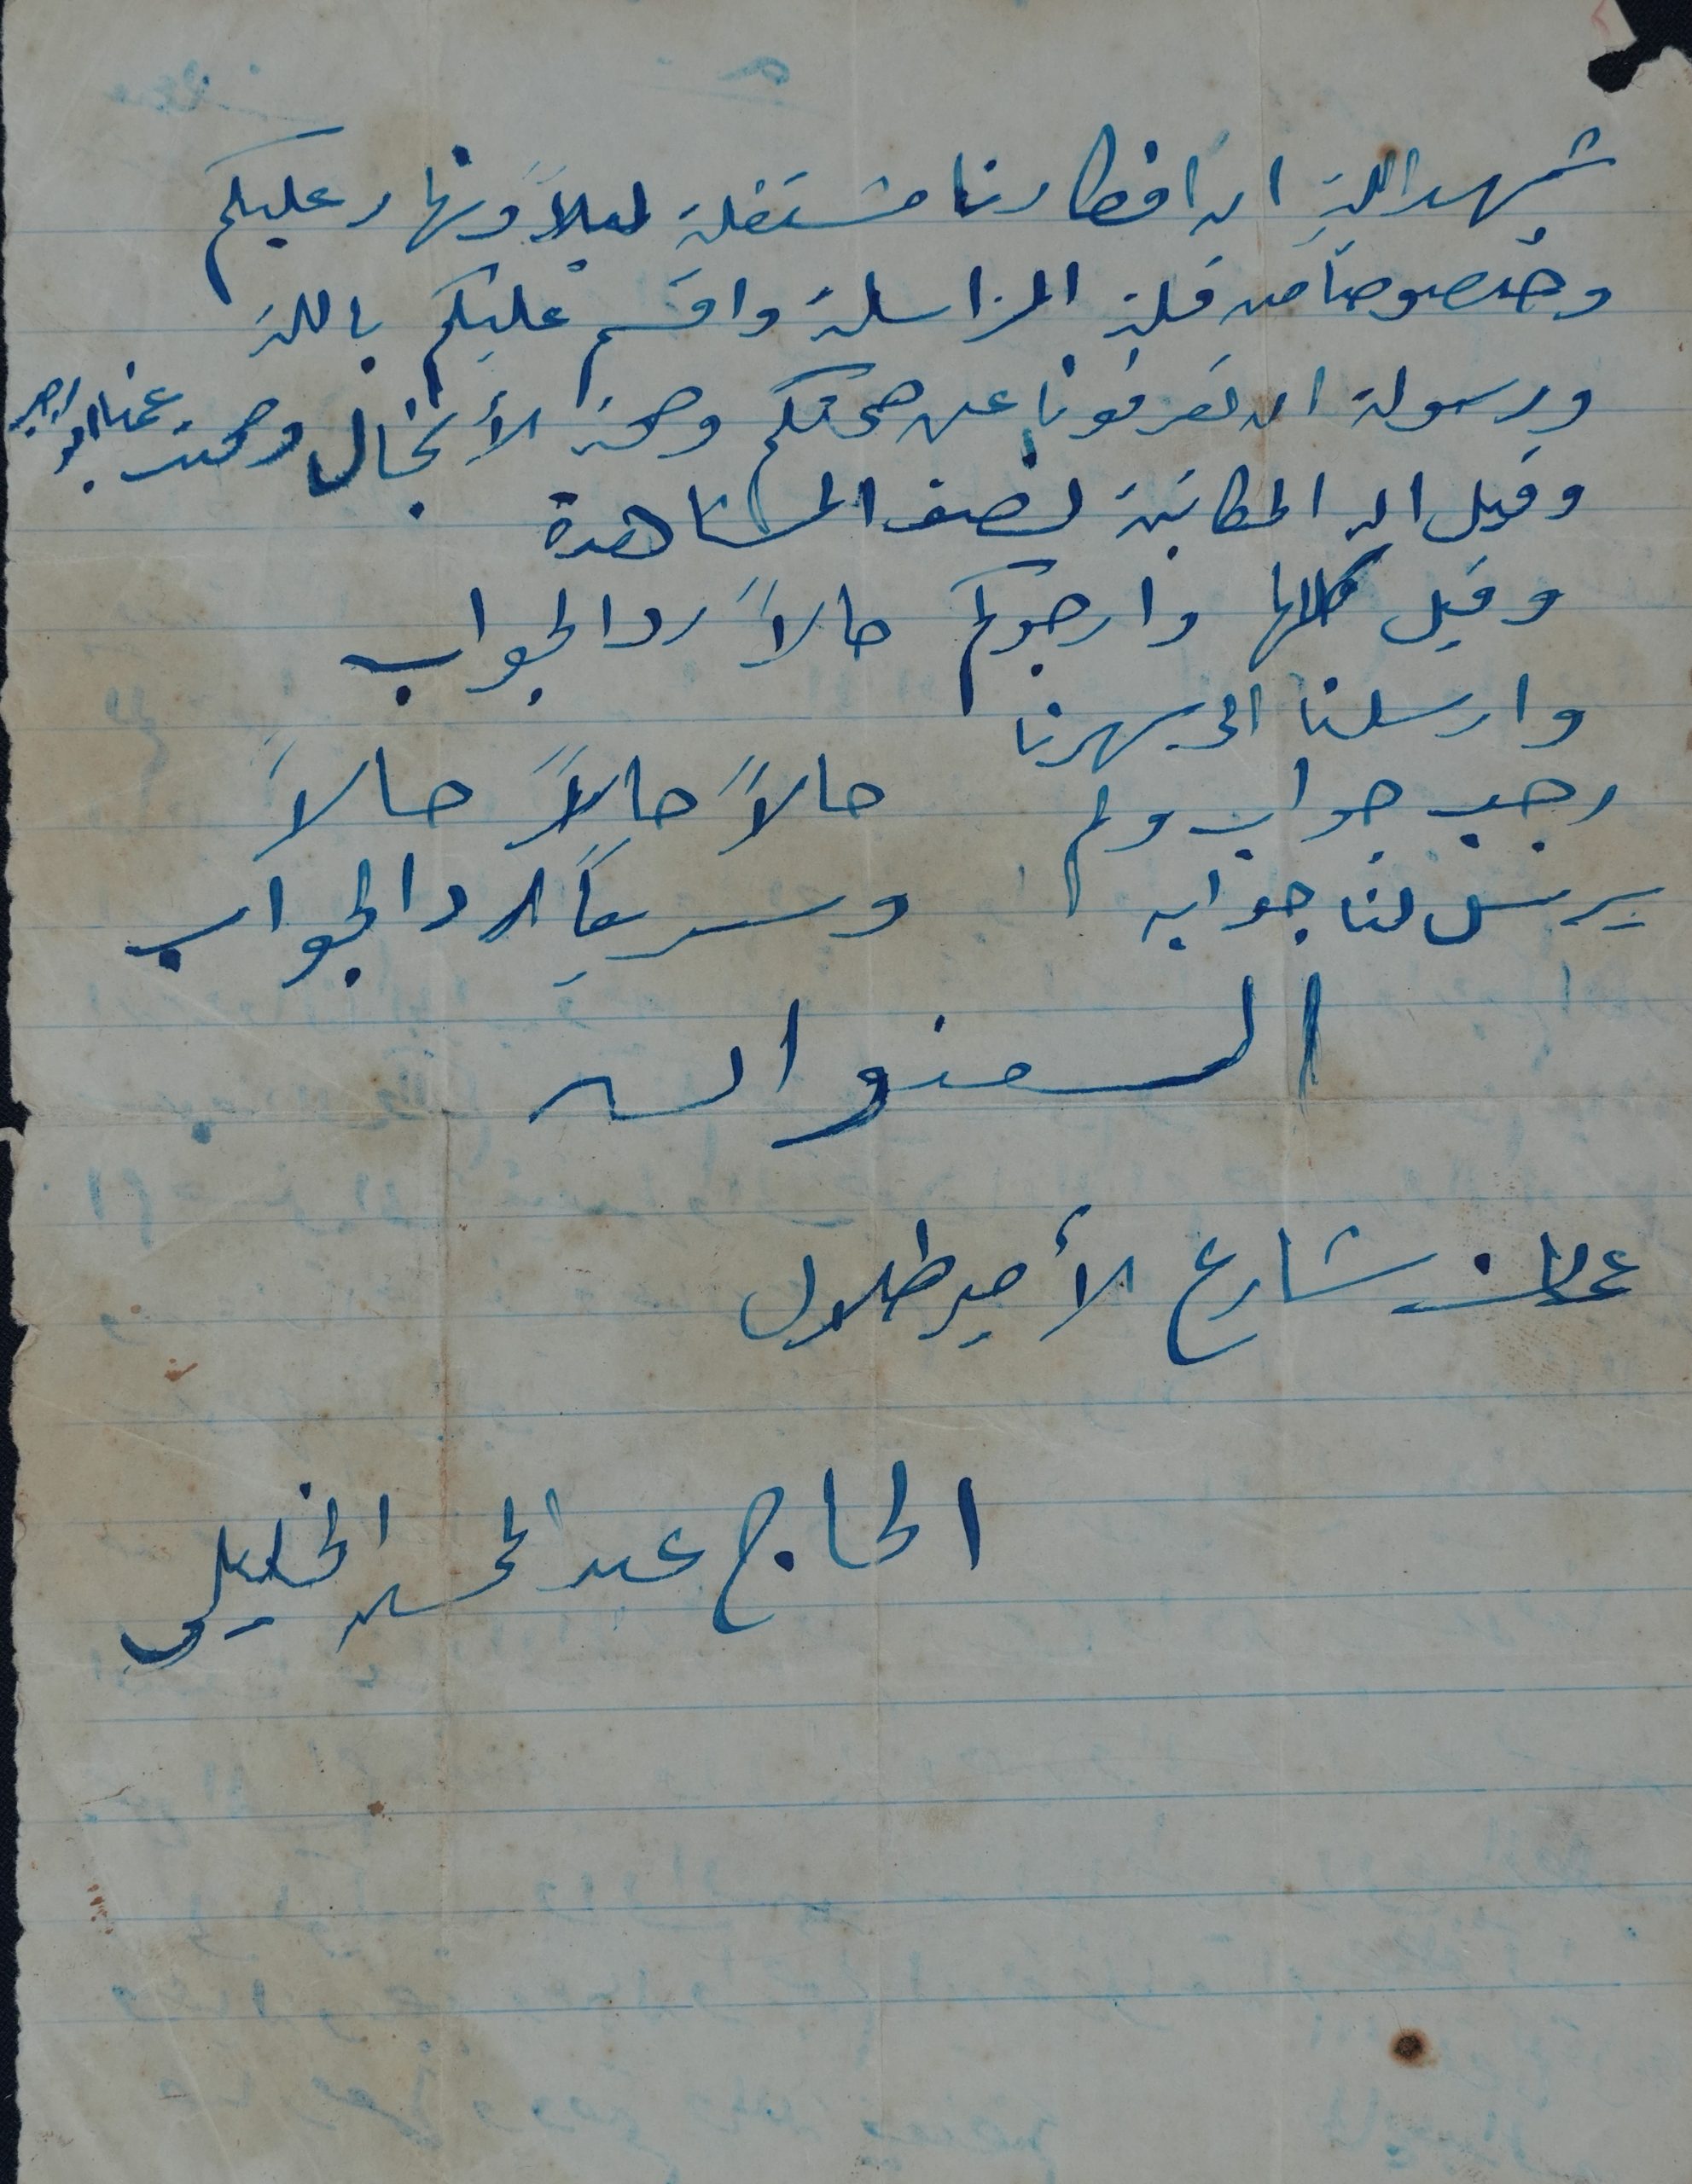 شهد الله ان افكارنا مشتغلة ليلاً ونهار عليكم
وخصوصاً من قلة المراسلة واقسم عليكم بالله
ورسوله ان تعرفونا عن صحتكم وصحة الأنجال وصحت عمنا ابو
وقيل ان المكاتبة نصف المشاهدة
وقيل كلها وارجوكم حالاً رد الجواب
وارسلنا الى سهرنا
رجب جواب ولم
يرسل لنا جوابه
حالاً حالاً حالاً
وسريعاً لرد الجواب
العنوان
عمان شارع الأمير طلال
الحاج عبد المحسن الخليلي